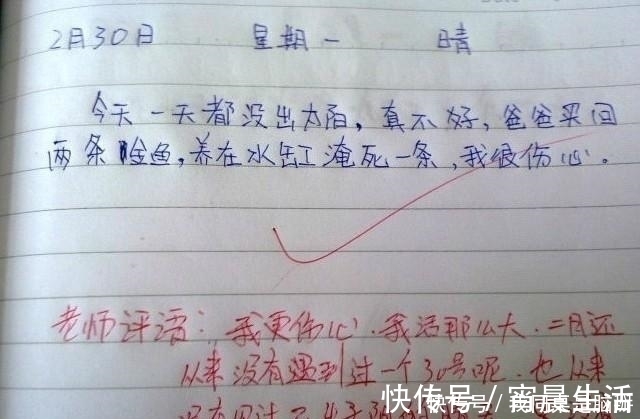 2月30日 星期一 晴
今天一天都没出太阳，真不好，爸爸买回
两条金鱼，养在水缸淹死一条，我很伤心。
老师评语：我更伤心．我活那么大．二月还
从来没有遇到过一个30号呢．也从来
没有见过不出太阳
快传号／蜜晨生活
快传号／